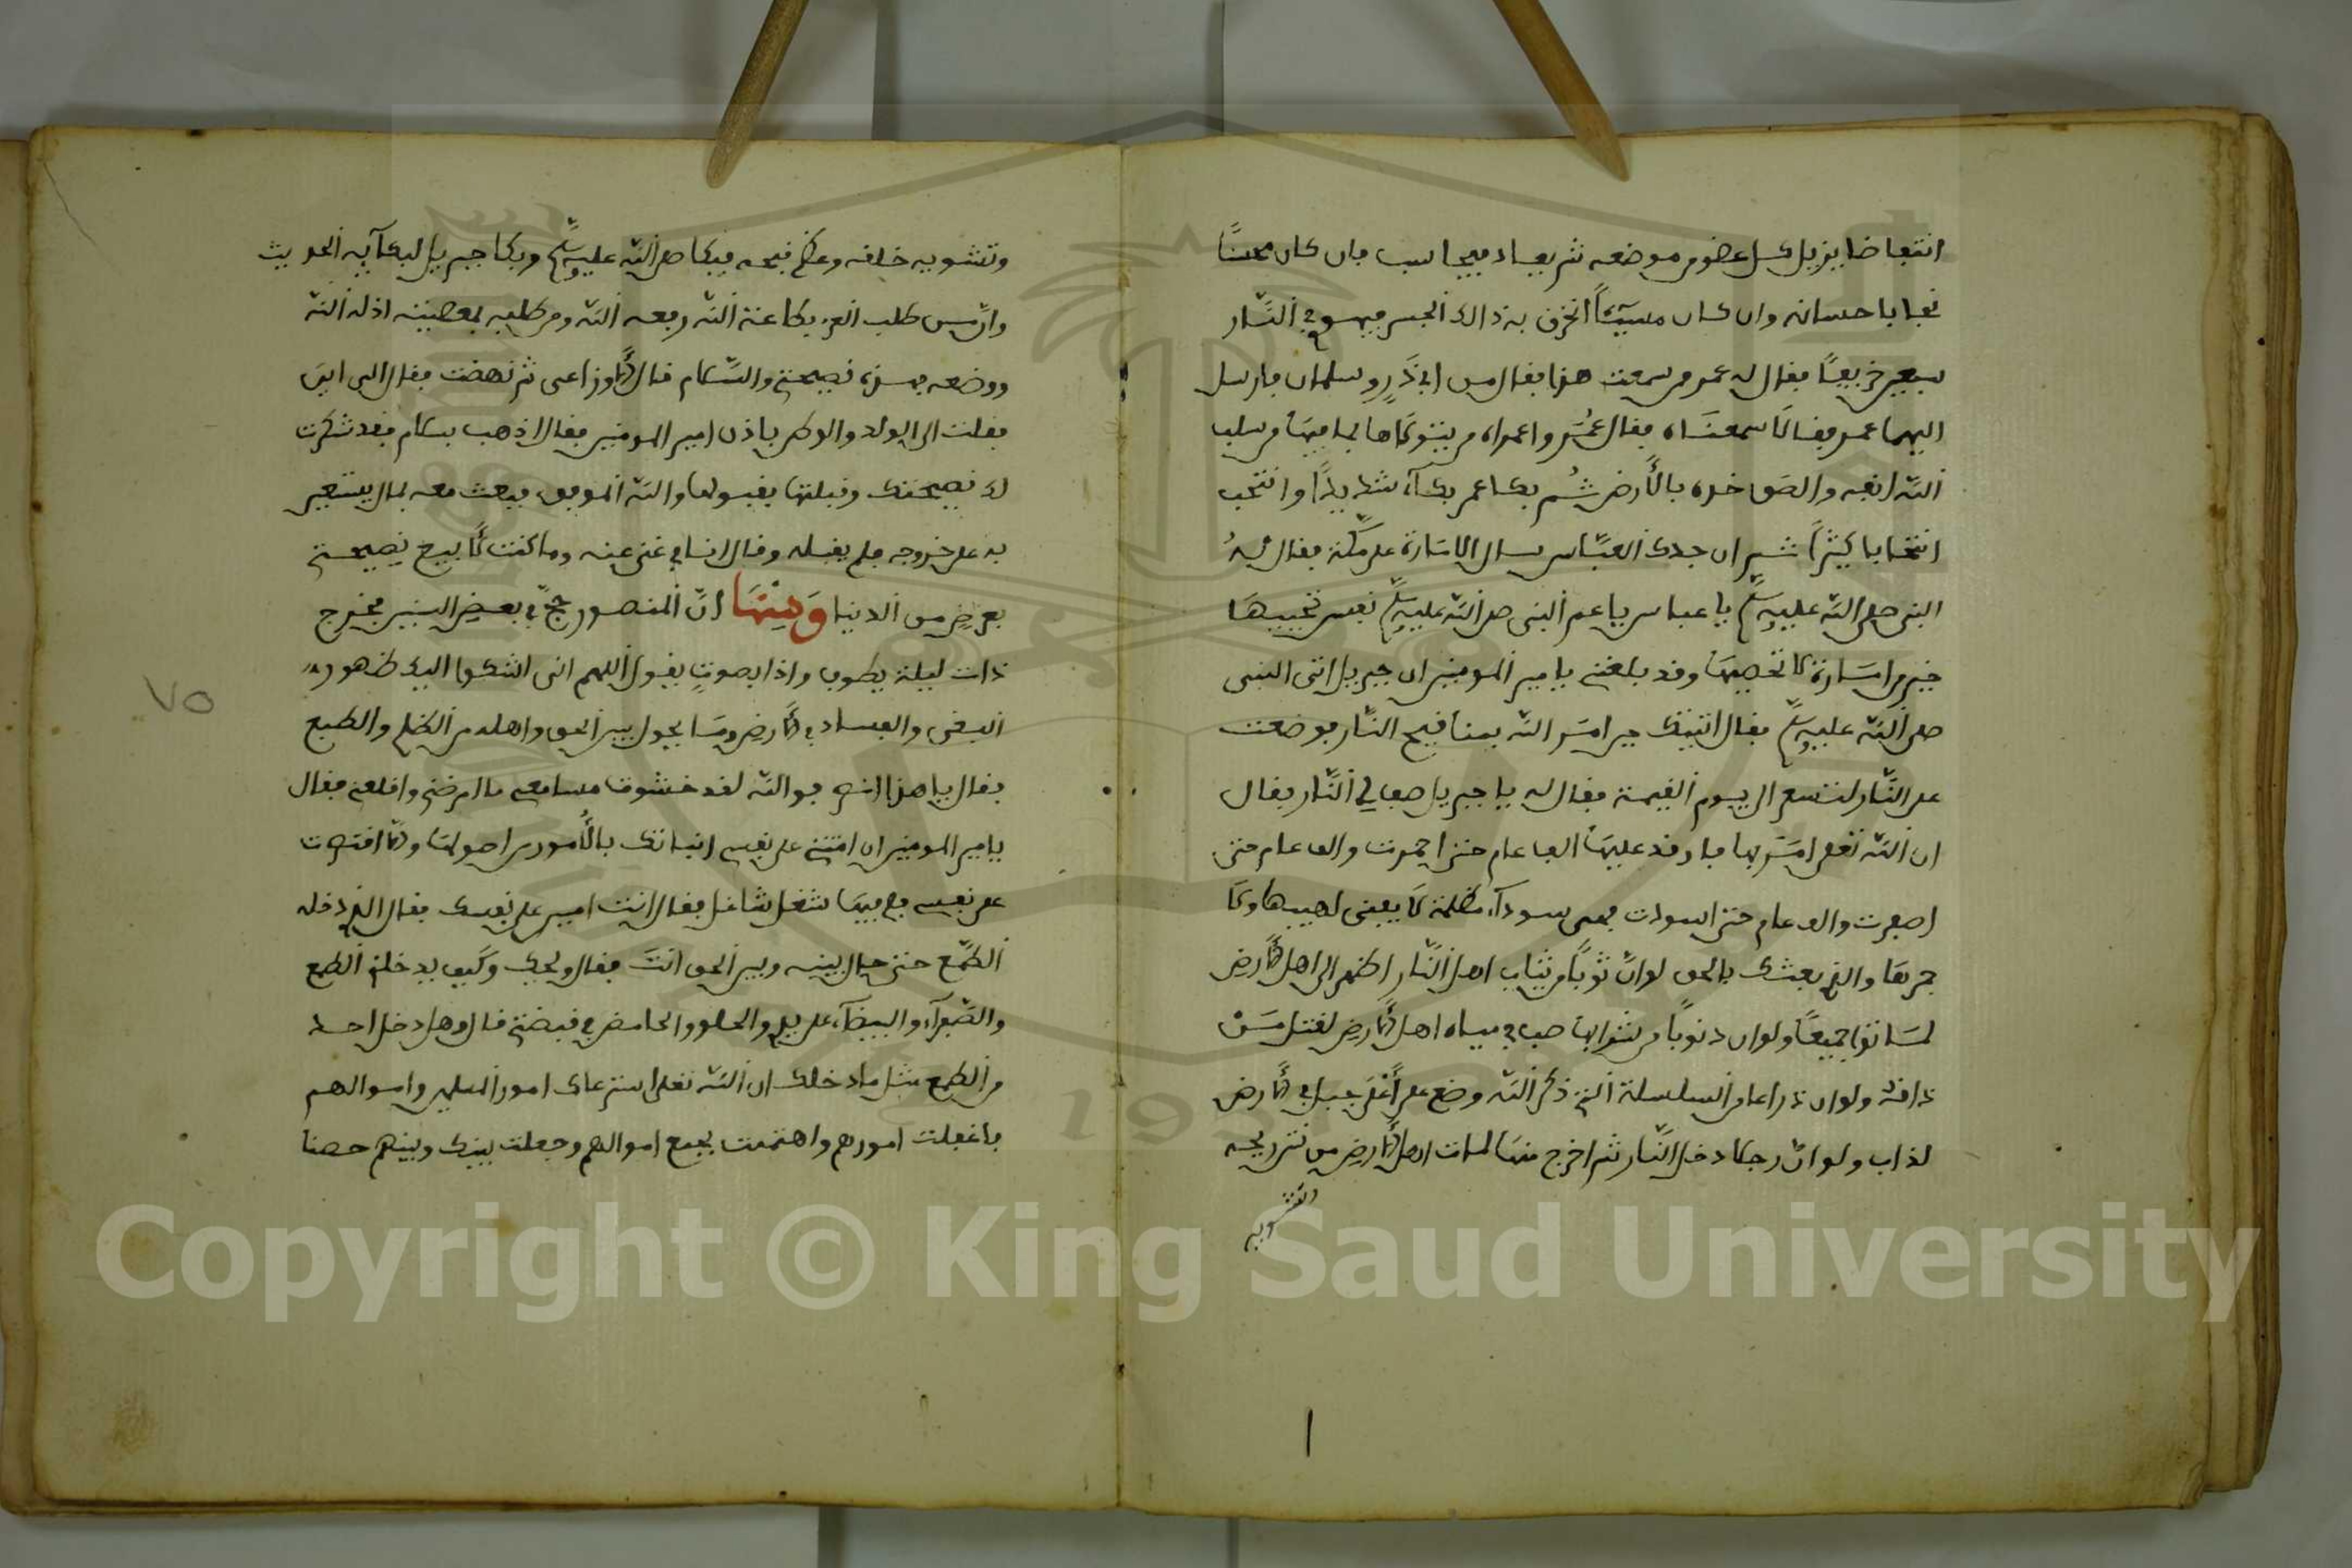 انتفاضا يزيل كل عضو من موضعه ثم يعاد فيحاسب فان كان محسنًا
نجا باحسانه وان كان مسيئًا انخرق به ذالك الجسر فيهوى في النار
سبعين خريفًا فقال له عمر ممن سمعت هذا فقال من ابي ذَرٍ وسلمان فارسل
اليهما عمر فقالا سمعناه فقال عُمَر واعمراه من يتولاها بما فيها من سلب
الله انفه والصق خده بالأرض ثُم بكا عمر بكآء شديدًا وانتحب
انتحابا كثيرًا ثم ان جدك العبّاس سال الامارة على مكّة فقال لهُ
النبي صلى الله عليه وسلم يا عباس يا عم النبي صلى الله عليه وسلم نفس تحييها
خير من امارة لا تحصيها وقد بلغني يامير المومنين ان جبريل اتى النبي
صلى الله عليه وسلم فقال اتيتك حين امر الله بمنافيح النار فوضعت
على النّار لتسعر الى يوم القيمة فقال له يا جبريل صف لي النّار فقال
ان الله تعلى امر بها فاوقد عليها الف عام حتى احمرت والف عام حتى
اصفرت والف عام حتى اسودت فهي سودآء مظلمة لا يضيئ لهيبها ولا
جمرها والذي بعثك بالحق لو انّ ثوبًا من ثياب اهل النّار اظهر الى اهل الأرض
لماتوا جميعًا ولو ان دنوبًا من شرابها صب في مياه اهل الأرض لقتل مَنْ
ذاقه ولو ان ذراعا من السلسلة التي ذكر الله وضع على جبل في الأرض
لذاب ولو انّ رجلا دخل النّار ثم اخرج منها لمات اهل الأرض من نتن ريحه
وتشويه خلقه وعظم قبحه فبكا صلى الله عليه وسلم وبكا جبريل لبكآيه الحديث
وانّ من طلب العز بطاعة الله رفعه الله ومن طلبه بمعصيته اذله الله
ووضعه فهذه نصيحتي والسّلام قال الأوزاعي ثم نهضت فقال الى اين
فقلت الى الولد والوطن باذن امير المومنين فقال اذهب بسلام فقد شكرت
لك نصيحتك وقبلتها بقبولها والله الموفق فبعث معه بمال يستعين
به على خروجه فلم يقبله وقال انا في غنى عنه وما كنت لأبيع نصيحتي
بعرضٍ من الدنيا وَمِنْهَا انّ المنصور حجّ في بعض السنين فخرج
ذات ليلة يطوف واذا بصوتٍ يقول اللهم اني اشكوا اليك ظهور
البغي والفساد في الأرض وما يحول بين الحق واهله من الظلم والطمع
فقال يا هذا فوالله لقد حشوت مسامعي ما امرضني واقلقني فقال
يامير المومنين ان امنتني على نفسي انباتك بالأمور من اصولها والّا اقتصرت
على نفسي ففيها شغل شاغل فقال انت امين على نفسك فقال الذي دخله
الطّمع حتى حال بينه وبين الحق انتَ فقال ويحك وكيف يدخلني الطمع
والصّفرآء والبيضآء على يدي والحلو والحامض في قبضتي قال وهل دخل احد
من الطمع مثل ما دخلك ان الله تعلى استرعاك امور المسلمين واموالهم
فاغفلت امورهم واهتممت بجمع اموالهم وجعلت بينك وبينهم حصنا
٧٥
Copyright © King Saud University